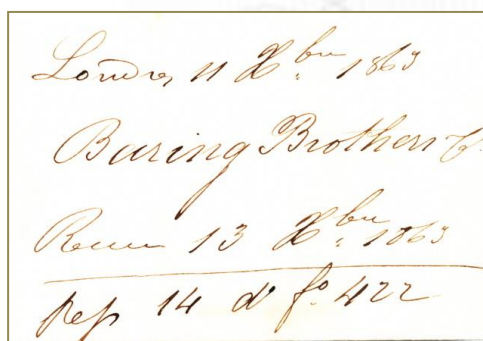 Londres 11 Xbre 1863
Baring Brothers & Co
Recue 13 Xbre 1863
Rep 14 do fo 422